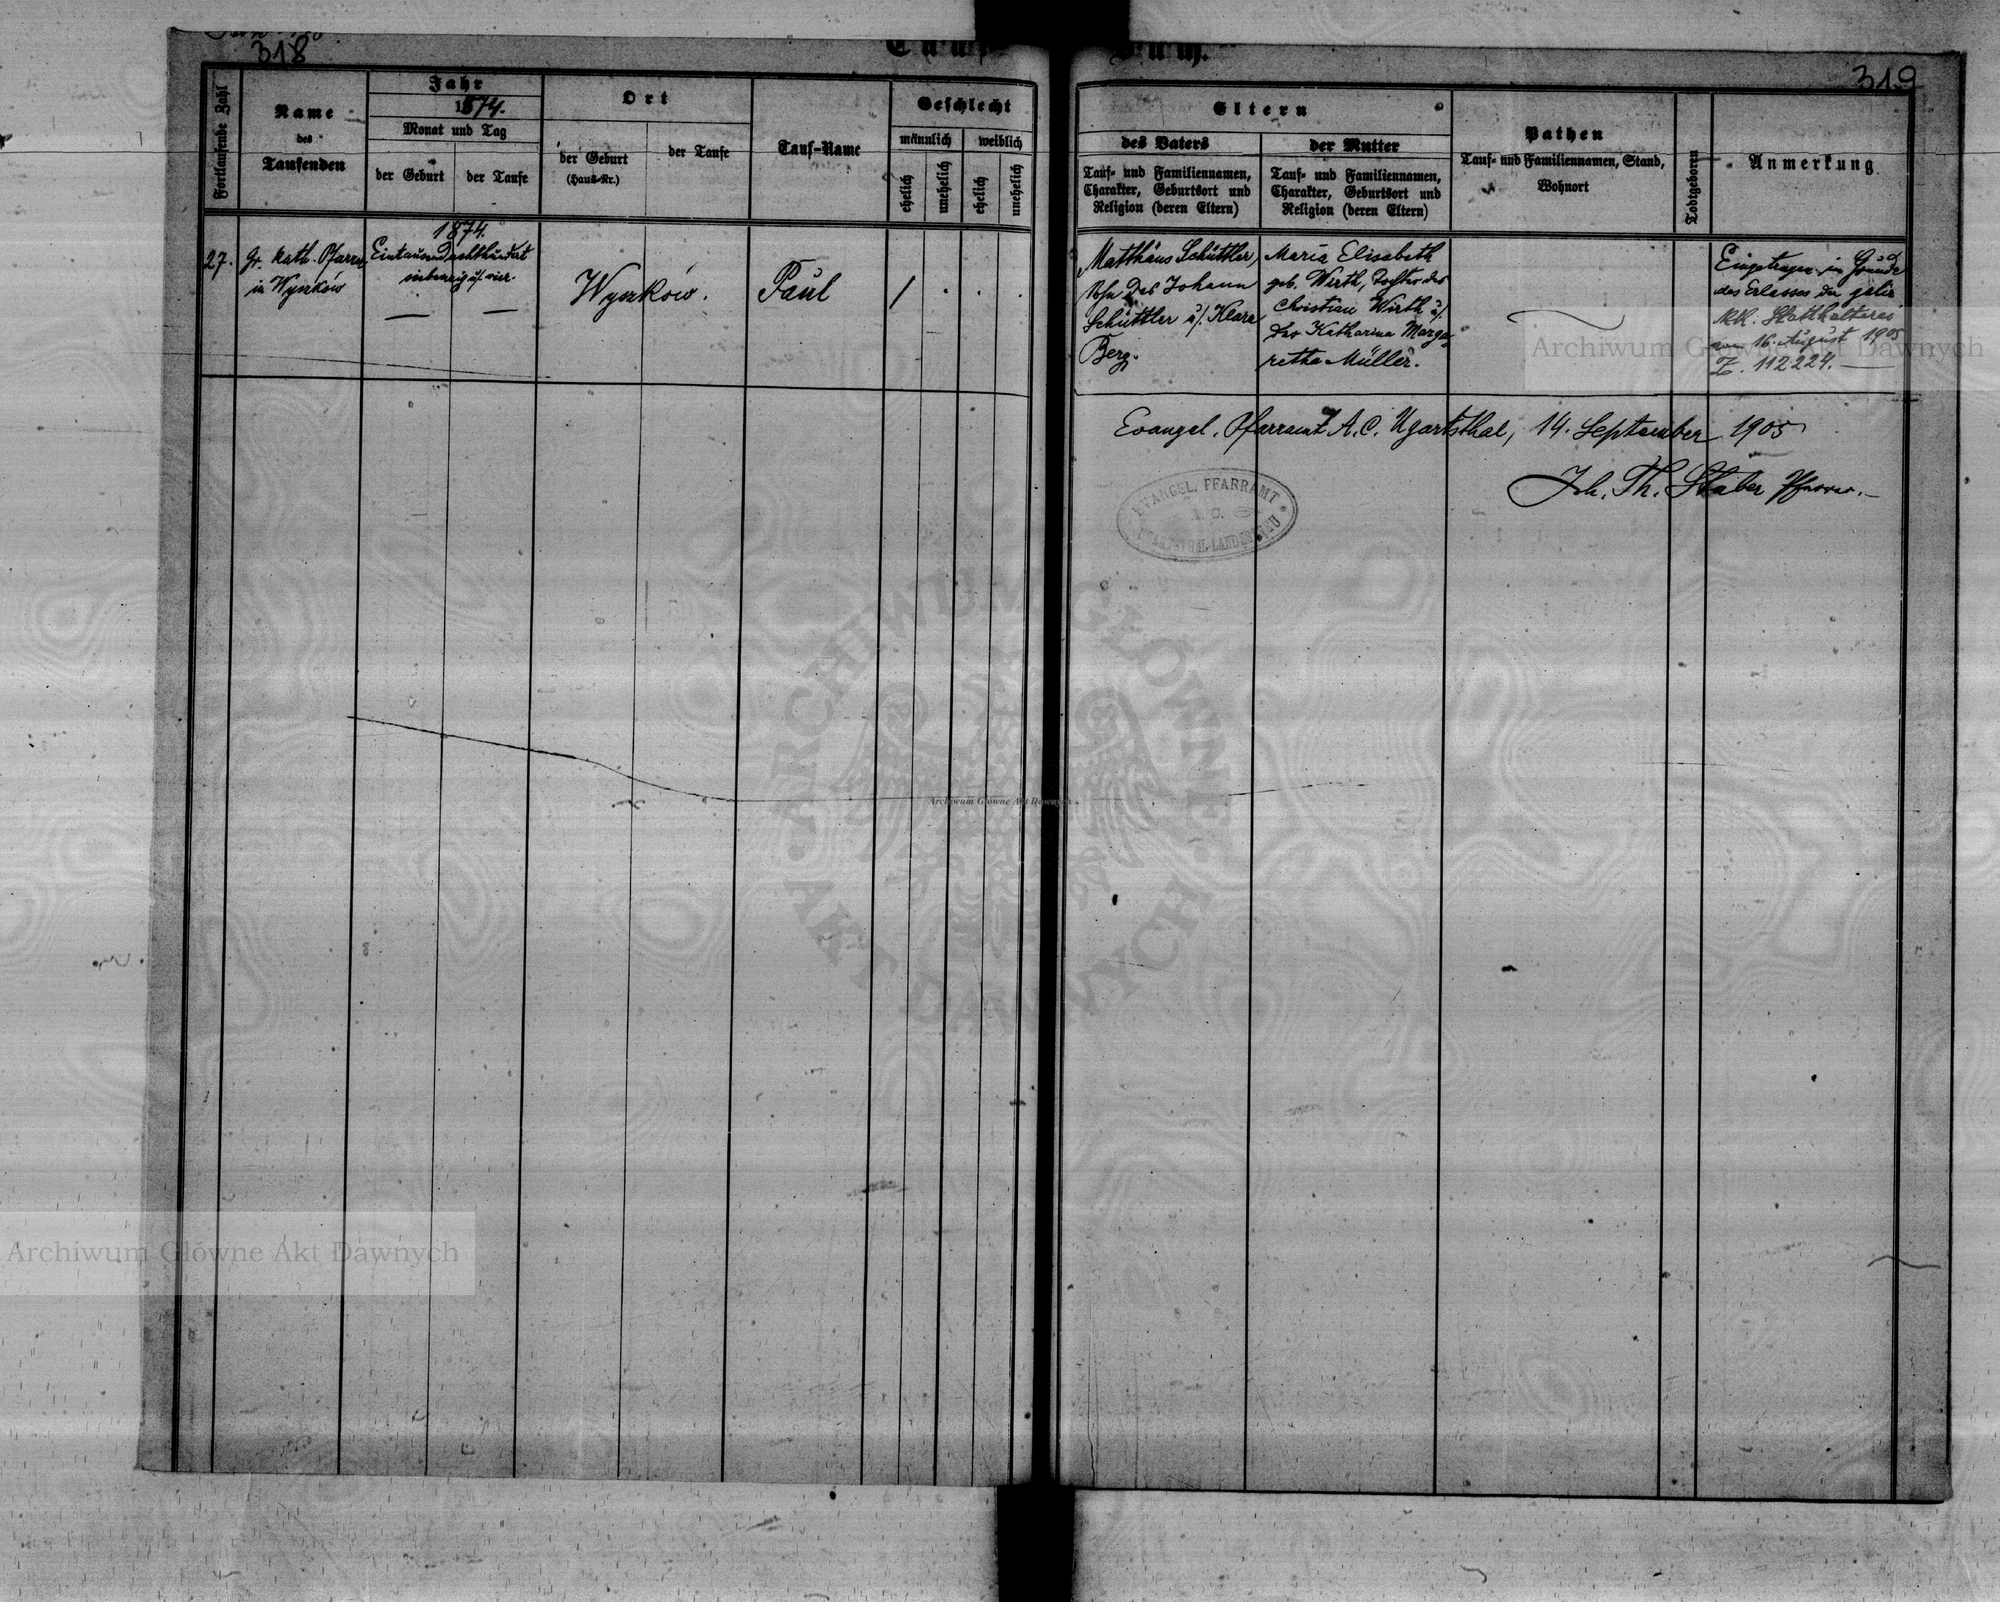 318
319
Fortlaufende Zahl
Name
des
Taufenden
Jahr
1874.
Monat und Tag
der Geburt
der Taufe
Ort
der Geburt
(Haus-Nr.)
der Taufe
Tauf-Name
Geschlecht
männlich
weiblich
ehelich
unehelich
ehelich
unehelich
Eltern
des Vaters
Tauf- und Familiennamen,
Charakter, Geburtsort und
Religion (deren Eltern)
der Mutter
Tauf- und Familiennamen,
Charakter, Geburtsort und
Religion (deren Eltern)
Pathen
Tauf- und Familiennamen, Stand,
Wohnort
Todtgeboren
Anmerkung
27.
Gr. kath. Pfarrer
in Wyszków
1874.
Eintausendachthundert
siebenzig u/. vier.
Wyszków.
Paul
/
Matthäus Schüttler,
Sohn des Johann
Schüttler u/. Klara
Berg.
Maria Elisabeth
geb. Wirth, Tochter des
Christian Wirth u/.
der Katharina Marga-
retha Müller.
Eingetragen im Grunde
des Erlasses der galiz.
k.k. Statthalterei
vom 16. August 1905
Z. 112224.
Evangel. Pfarramt A.C. Ugartsthal, 14. September 1905
Joh. Th. Stäber Pfarrer.
EVANGEL. PFARRAMT
A. C.
Archiwum Główne Akt Dawnych
ARCHIWUM GŁÓWNE
AKT DAWNYCH
Archiwum Główne Akt Dawnych
Archiwum Główne Akt Dawnych